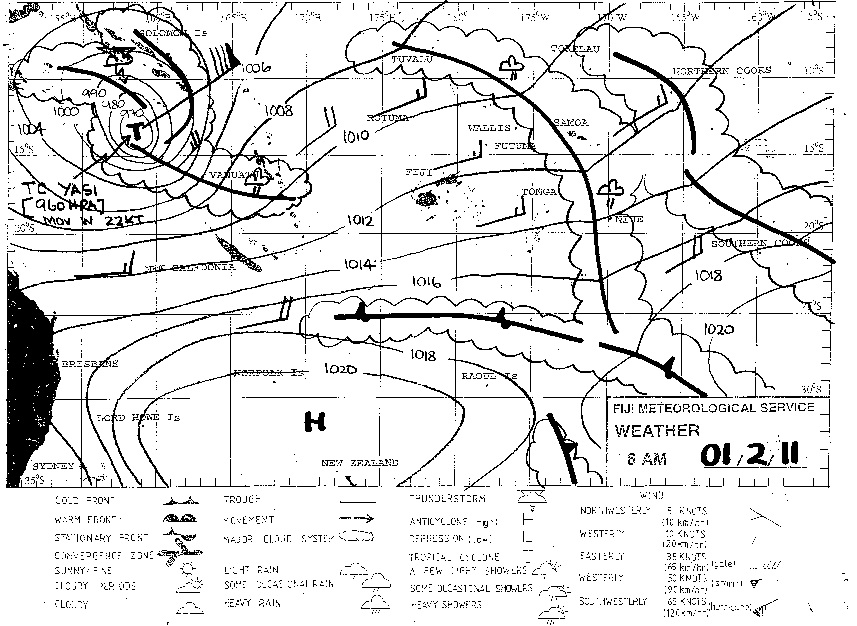 155°E
160°E
165°E
170°E
175°E
180°
175°W
170°W
165°W
160°W
SOLOMON Is
TUVALU
TOKELAU
NORTHERN COOKS
10°S
1006
990
980
970
1000
1008
ROTUMA
1004
1010
WALLIS
FUTUNA
SAMOA
T
15°S
15°S
VANUATU
FIJI
TC YASI
[960HPA]
MOV W 22KT
TONGA
NIUE
1012
20°S
20°S
SOUTHERN COOKS
NEW CALEDONIA
1014
1016
1018
1020
BRISBANE
NORFOLK Is
1020
1018
RAOUL Is
30°S
LORD HOWE Is
H
SYDNEY
35°S
NEW ZEALAND
FIJI METEOROLOGICAL SERVICE
WEATHER
6 AM 01/2/11
COLD FRONT
WARM FRONT
STATIONARY FRONT
CONVERGENCE ZONE
SUNNY-FINE
CLOUDY PERIODS
CLOUDY
TROUGH
MOVEMENT
MAJOR CLOUD SYSTEM
LIGHT RAIN
SOME OCCASIONAL RAIN
HEAVY RAIN
THUNDERSTORM
ANTICYCLONE (High) H
DEPRESSION (Low) L
TROPICAL CYCLONE
A FEW LIGHT SHOWERS
SOME OCCASIONAL SHOWERS
HEAVY SHOWERS
WIND
NORTHWESTERLY 5 KNOTS
(10 km/hr)
WESTERLY 10 KNOTS
(20km/hr)
EASTERLY 35 KNOTS
(65 km/hr) (gale)
WESTERLY 50 KNOTS
(90km/hr) (storm)
SOUTHWESTERLY 65 KNOTS
(120km/hr) (hurricane)